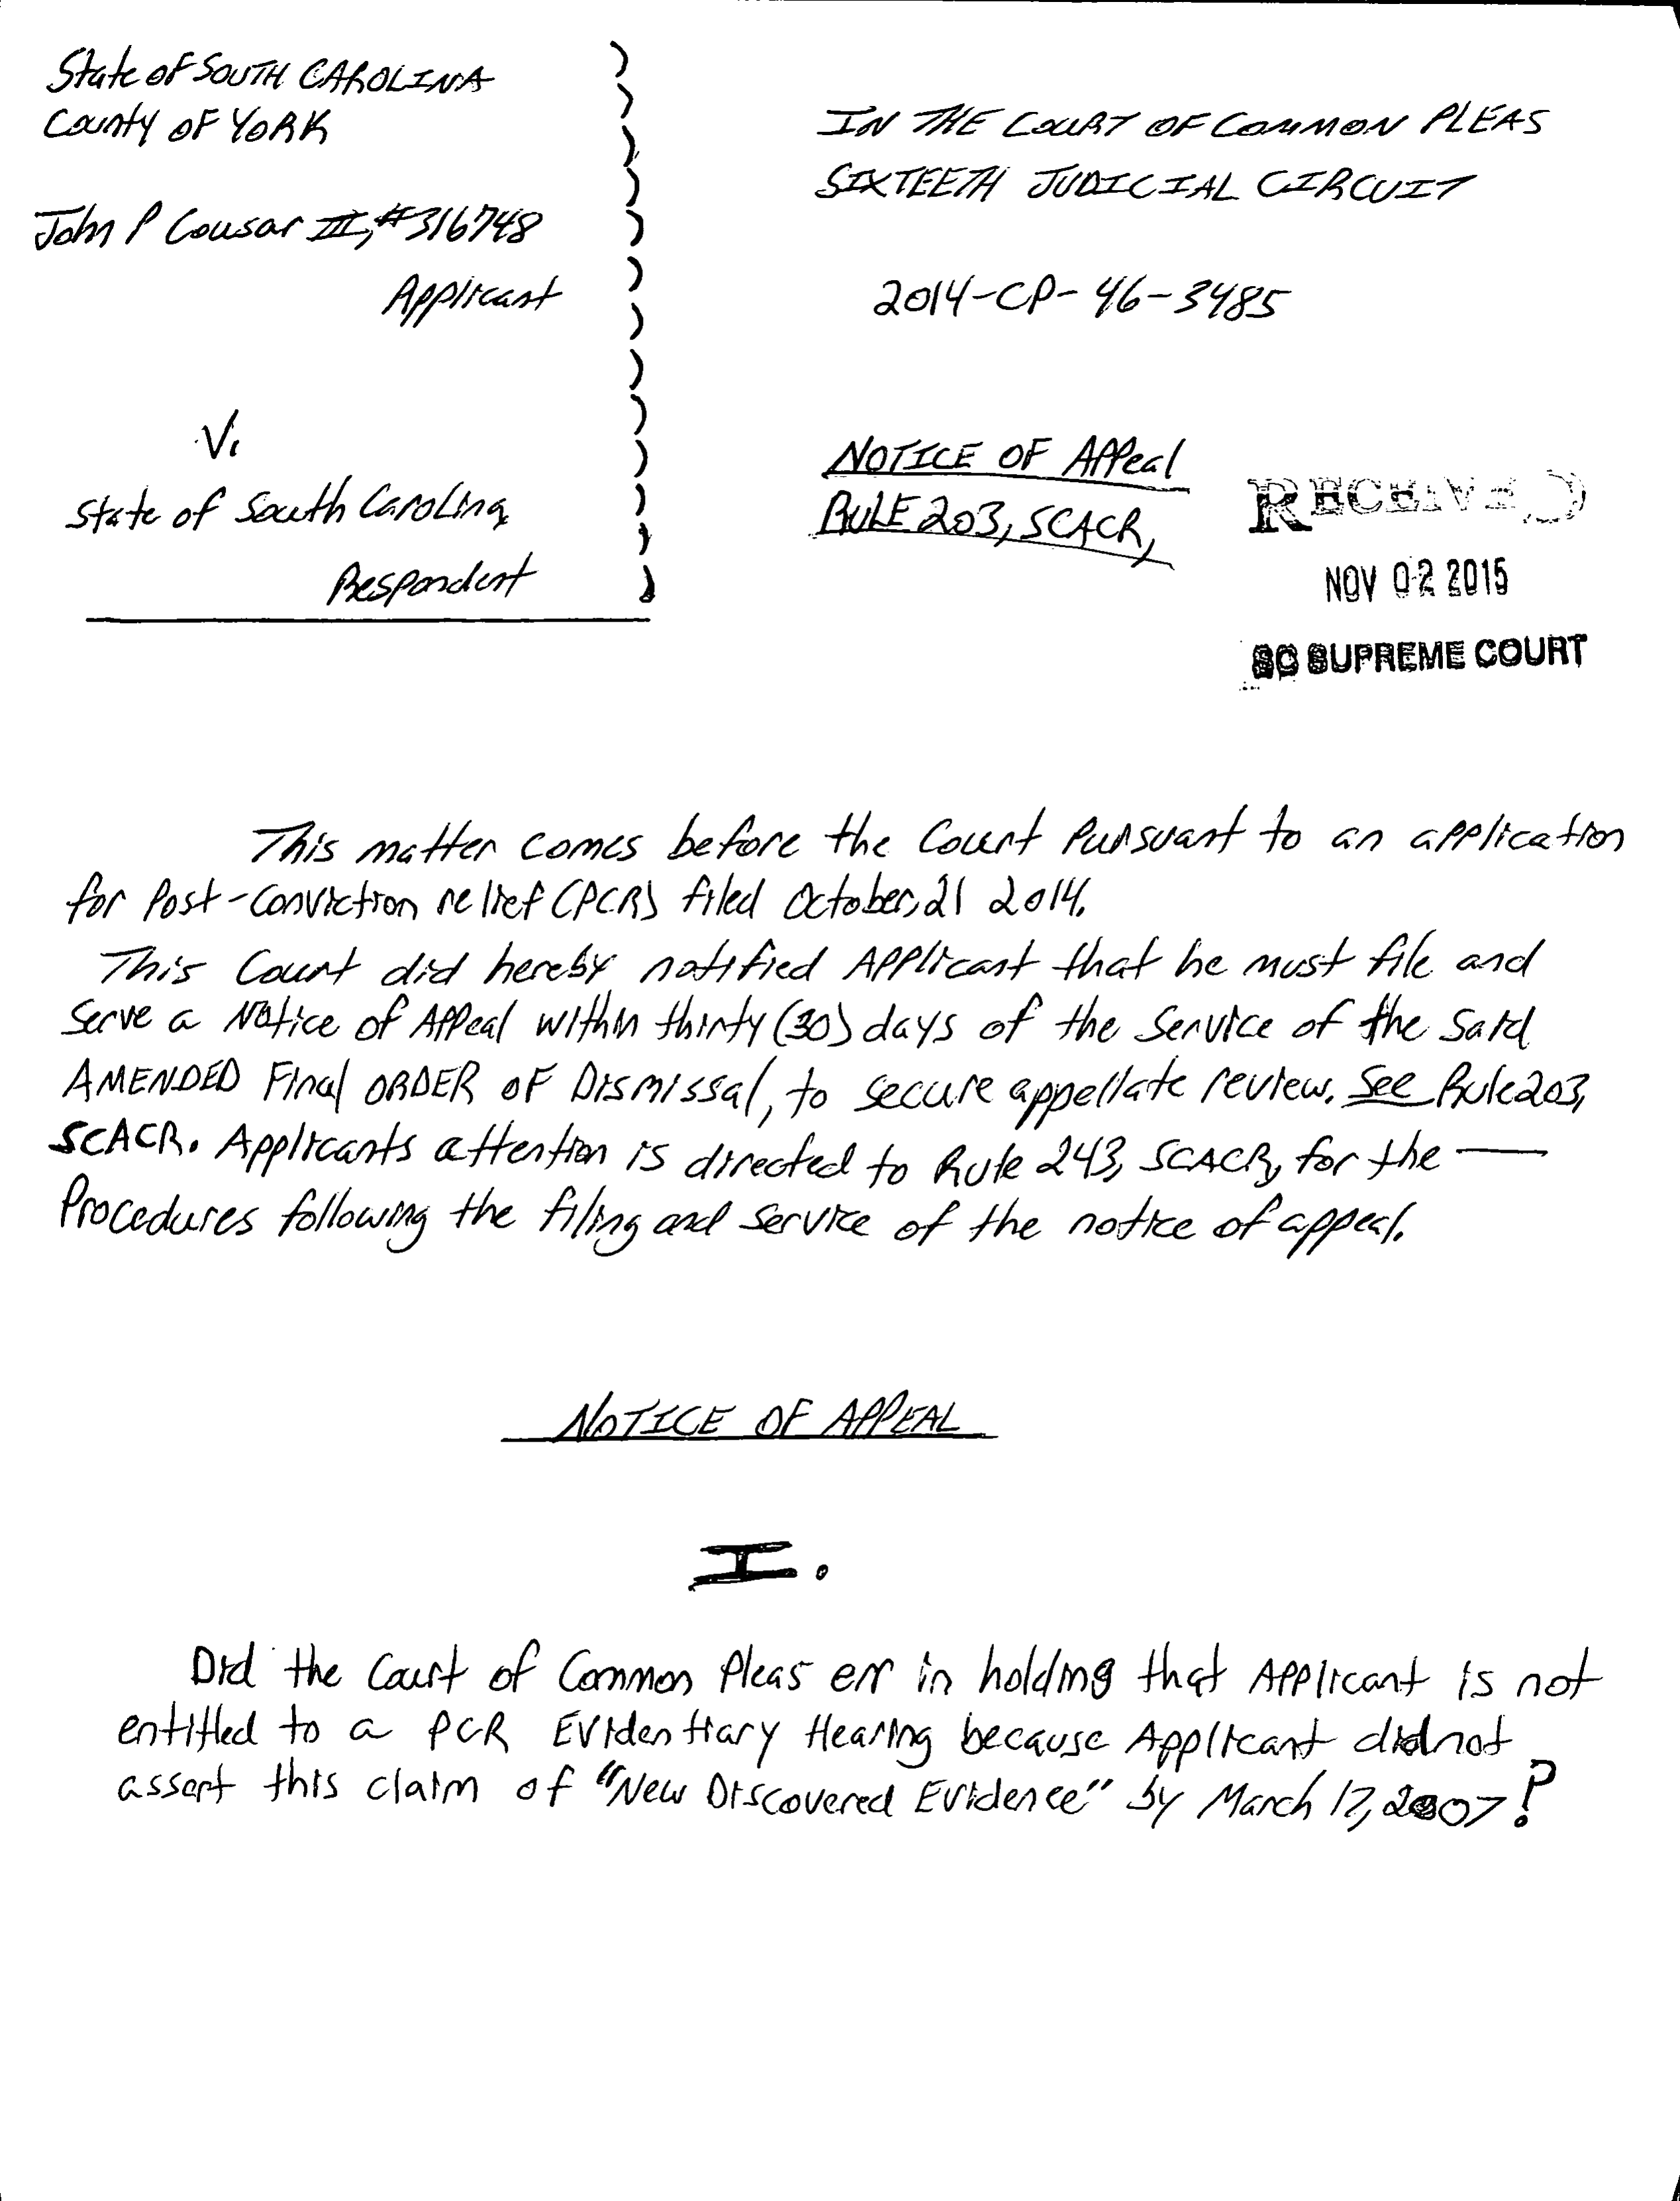 State of SOUTH CAROLINA
County OF YORK
John P Cousar III, #316748
Applicant
V.
State of South Carolina,
Respondent
)
)
)
)
)
)
)
)
)
)
)
)
)
IN THE COURT OF COMMON PLEAS
SIXTEETH JUDICIAL CIRCUIT
2014-CP-46-3485
NOTICE OF APPeal
RULE 203, SCACR,
RECEIVED
NOV 02 2015
SC SUPREME COURT
This matter comes before the Court Pursuant to an application
for Post-Conviction relief (PCR) filed October, 21 2014.
This Court did hereby notified Applicant that he must file and
Serve a Notice of Appeal within thirty (30) days of the Service of the Said
AMENDED Final ORDER OF Dismissal, to secure appellate review. See Rule 203,
SCACR. Applicants attention is directed to Rule 243, SCACR, for the —
Procedures following the filing and service of the notice of appeal.
NOTICE OF APPEAL
I.
Did the Court of Common Pleas err in holding that Applicant is not
entitled to a PCR Evidentiary Hearing because Applicant did not
assert this claim of "New Discovered Evidence" by March 17, 2007?